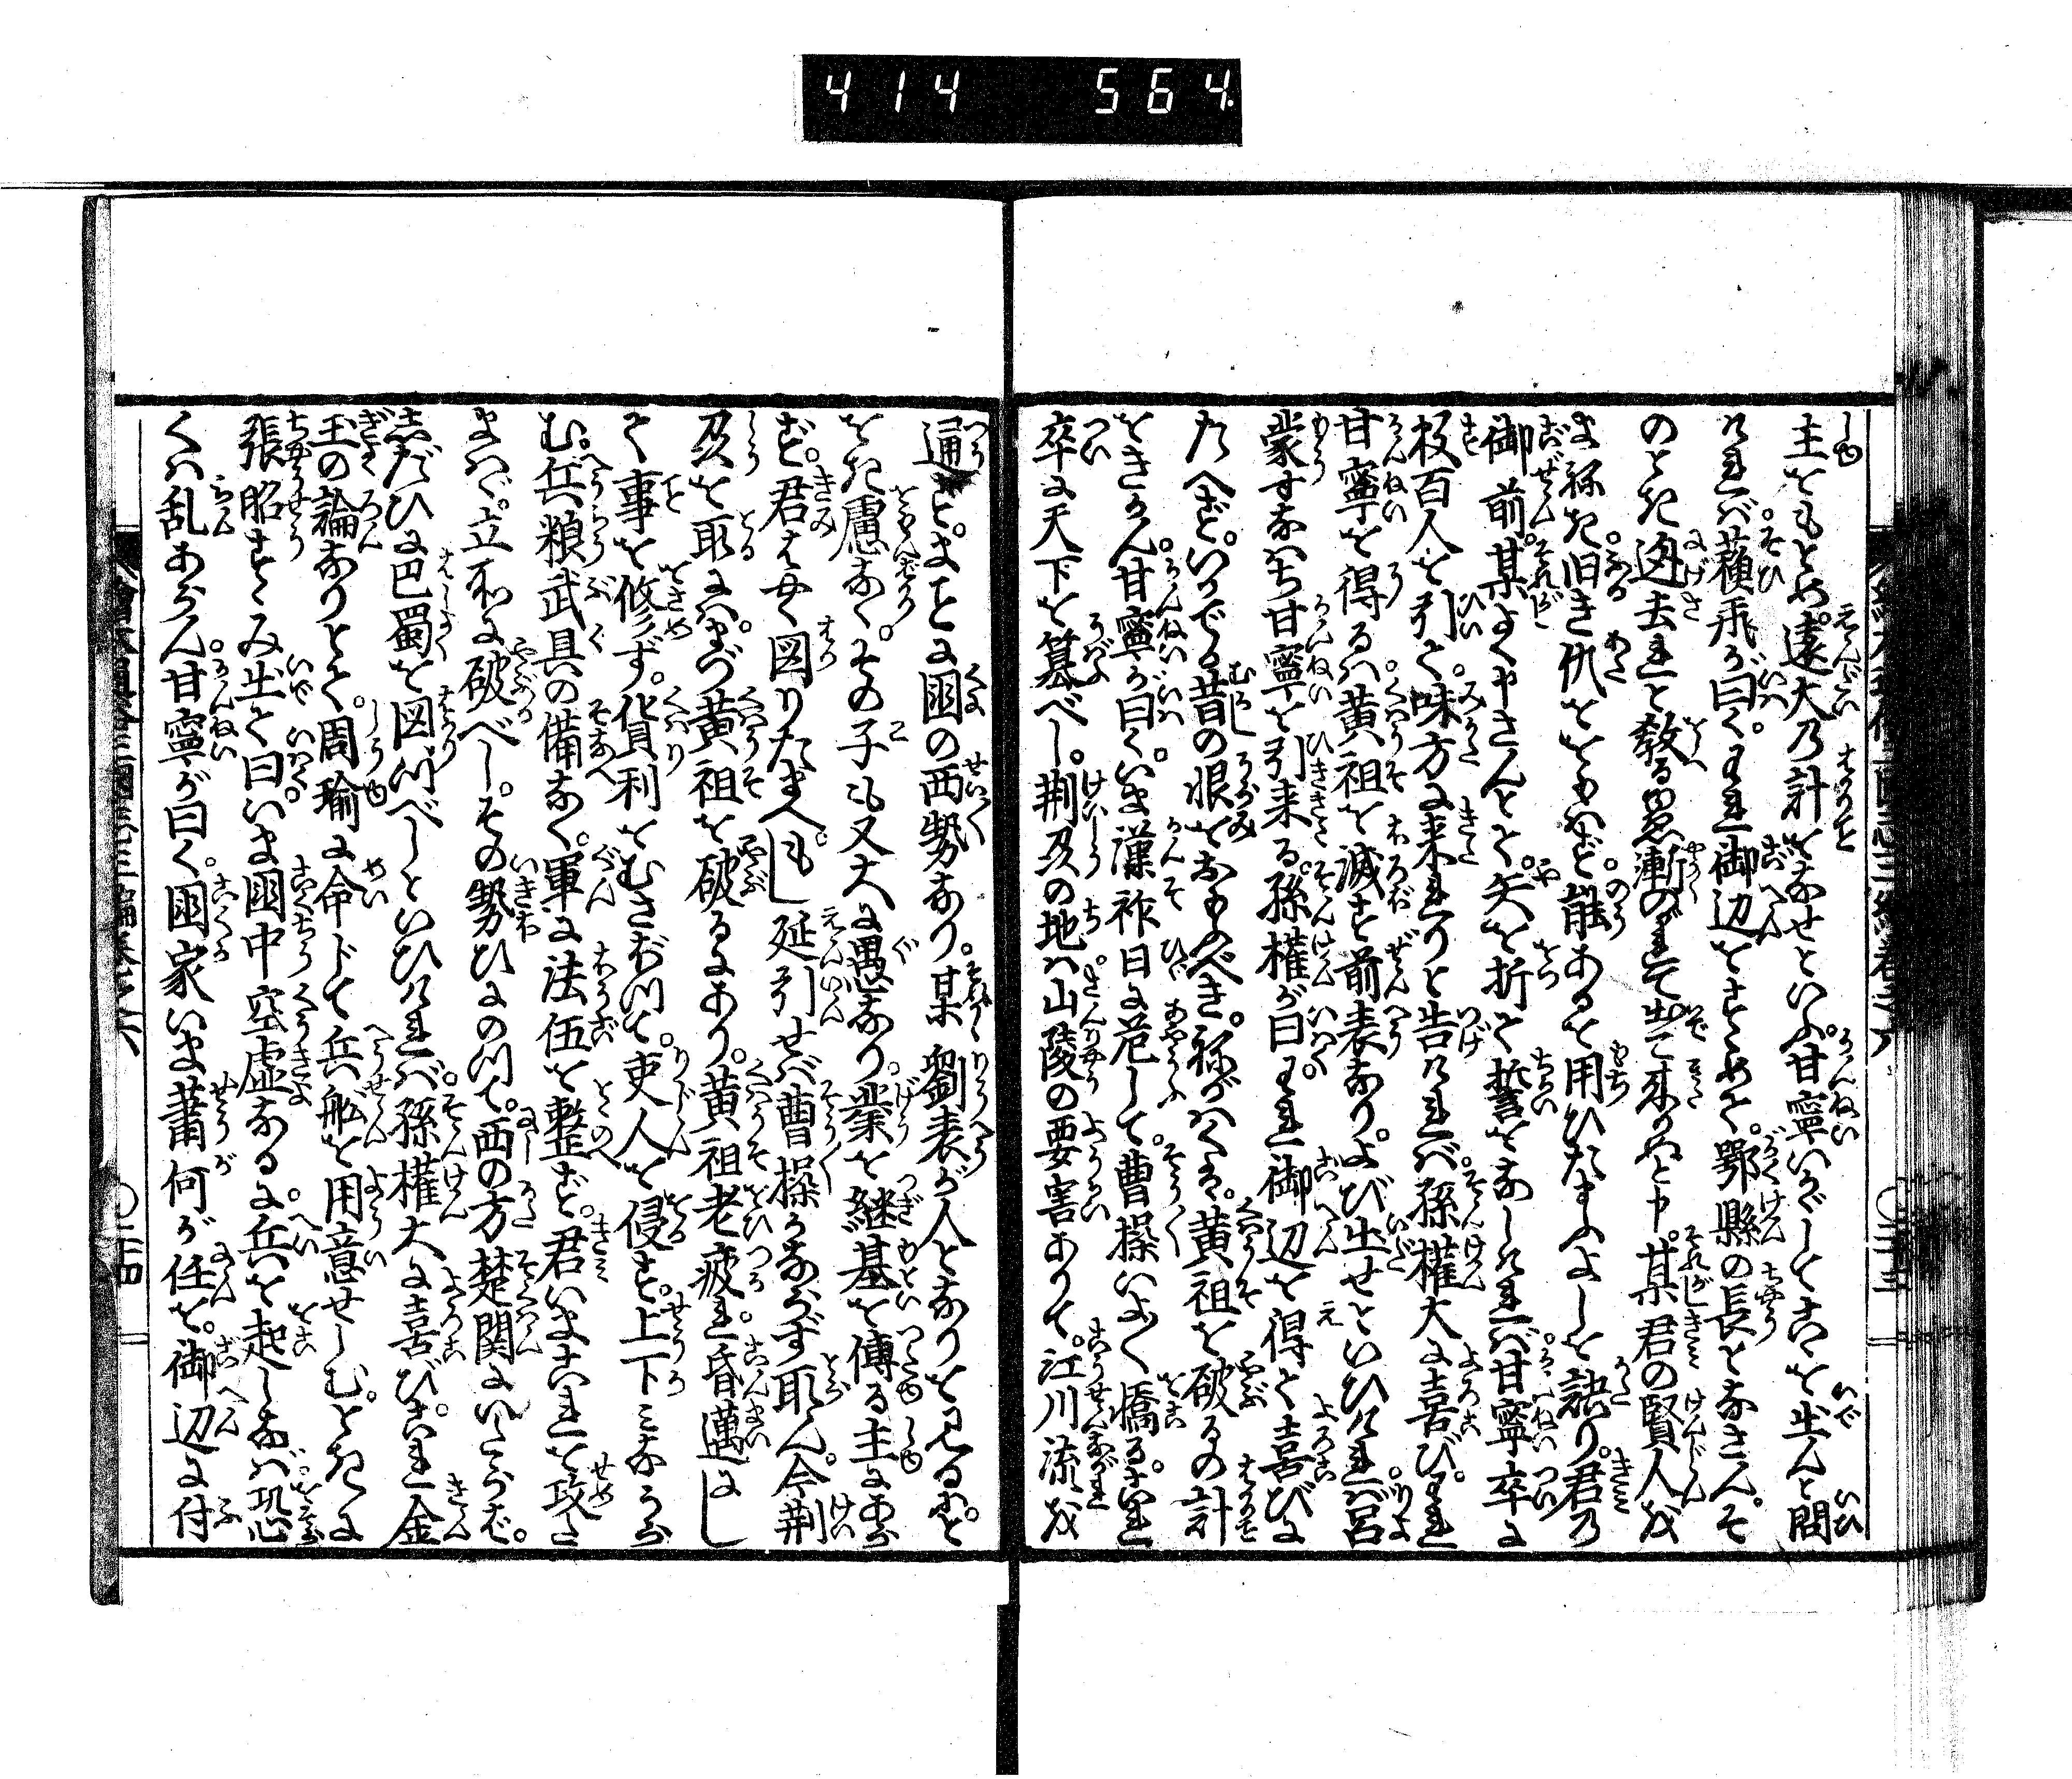 414 564
主をもとめ。遠大乃計をなせといふ。甘寧いかゞしてこゝを出んと問
ければ。蘓飛が曰く。われ御辺をすゝめて。鄂縣の長となさん。そ
のとき迯去れと教るゆゑ漸のがれて出て来りぬと申。某君の賢人を
まねき。旧き仇をとゝめず。能あるを用ひたまふよしを訣り。君乃
御前。某よく申さんとて。矢を折て誓をなしければ。甘寧卒に
板百人を引て。味方に来れりと告ければ。孫權大に喜び。われ
甘寧を得るハ黄祖を滅す前表なり。よび出せといひければ。呂
蒙すなはち甘寧を引来る。孫權が曰。われ御辺を得て喜びに
たへず。いかでか昔の恨をおもふべき。祢がハくは。黄祖を破るの計
をきかん。甘寧が曰く。いま漢祚日に危して。曹操いよ〳〵憍る。これ
卒に天下を簒べし。荆及の地ハ。山陵の要害ありて。江川流を
通ず。まことに國の西勢なり。某劉表が人となりを見るに。と
をき慮なく。その子も又大に愚なり。業を継基を傳る主にあら
ず。君はやく図りたまへ。もし延引せバ曹操かならず取ん。今荆
及を取にハ。まづ黄祖を破るにあり。黄祖老疲れ。昏邁にし
て事を修ず。貨利をむさぼつて。吏人を侵す。上下ミなうら
む。兵粮武具の備なく。軍に法伍を整ず。君いまこれを攻た
まハゞ。立所に破べし。その勢ひにのつて。西の方楚関にいたらば。
志だひに巴蜀を図つべしといひければ。孫權大に喜び。これ金
玉の論なりとて。周瑜に命じて兵舩を用意せしむ。ときに
張昭すゝみ出て曰。いま國中空虚なるに。兵を起しなば。恐
くハ乱あらん。甘寧が曰く。國家いま蕭何が任を。御辺に付